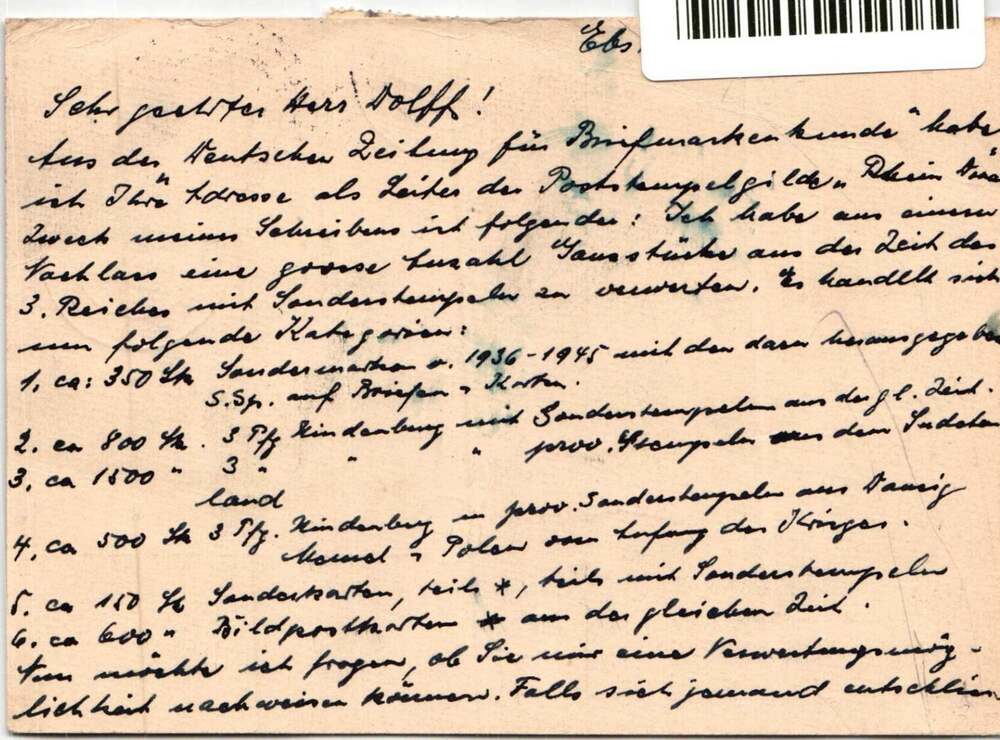 Ebs
Sehr geehrter Herr Dolff!
Aus der „Deutschen Zeitung für Briefmarkenkunde" habe
ich Ihre Adresse als Leiter der Poststempelgilde „Rhein Donau"
Zweck meines Schreibens ist folgender: Ich habe aus einem
Nachlass eine grosse Anzahl Ganzstücke aus der Zeit des
3. Reiches mit Sonderstempeln zu verwerten. Es handelt sich
um folgende Kategorien:
1. ca: 350 Stk Sondermarken v. 1936-1945 mit den dazu herausgegeben
S.St. auf Briefen u Karten.
2. ca 800 Stk. 3 Pfg Hindenburg mit Sonderstempeln aus der gl. Zeit.
3. ca 1500 " 3 " " " prov. Stempeln aus dem Sudeten
land
4. ca 500 Stk 3 Pfg. Hindenburg m prov. Sonderstempeln aus Danzig
Memel u Polen vom Anfang des Krieges.
5. ca 150 Stk Sonderkarten, teils *, teils mit Sonderstempeln
6. ca 600 " Bildpostkarten * aus der gleichen Zeit.
Nun möchte ich fragen, ob Sie mir eine Verwertungsmög-
lichkeit nachweisen können. Falls sich jemand entschlies